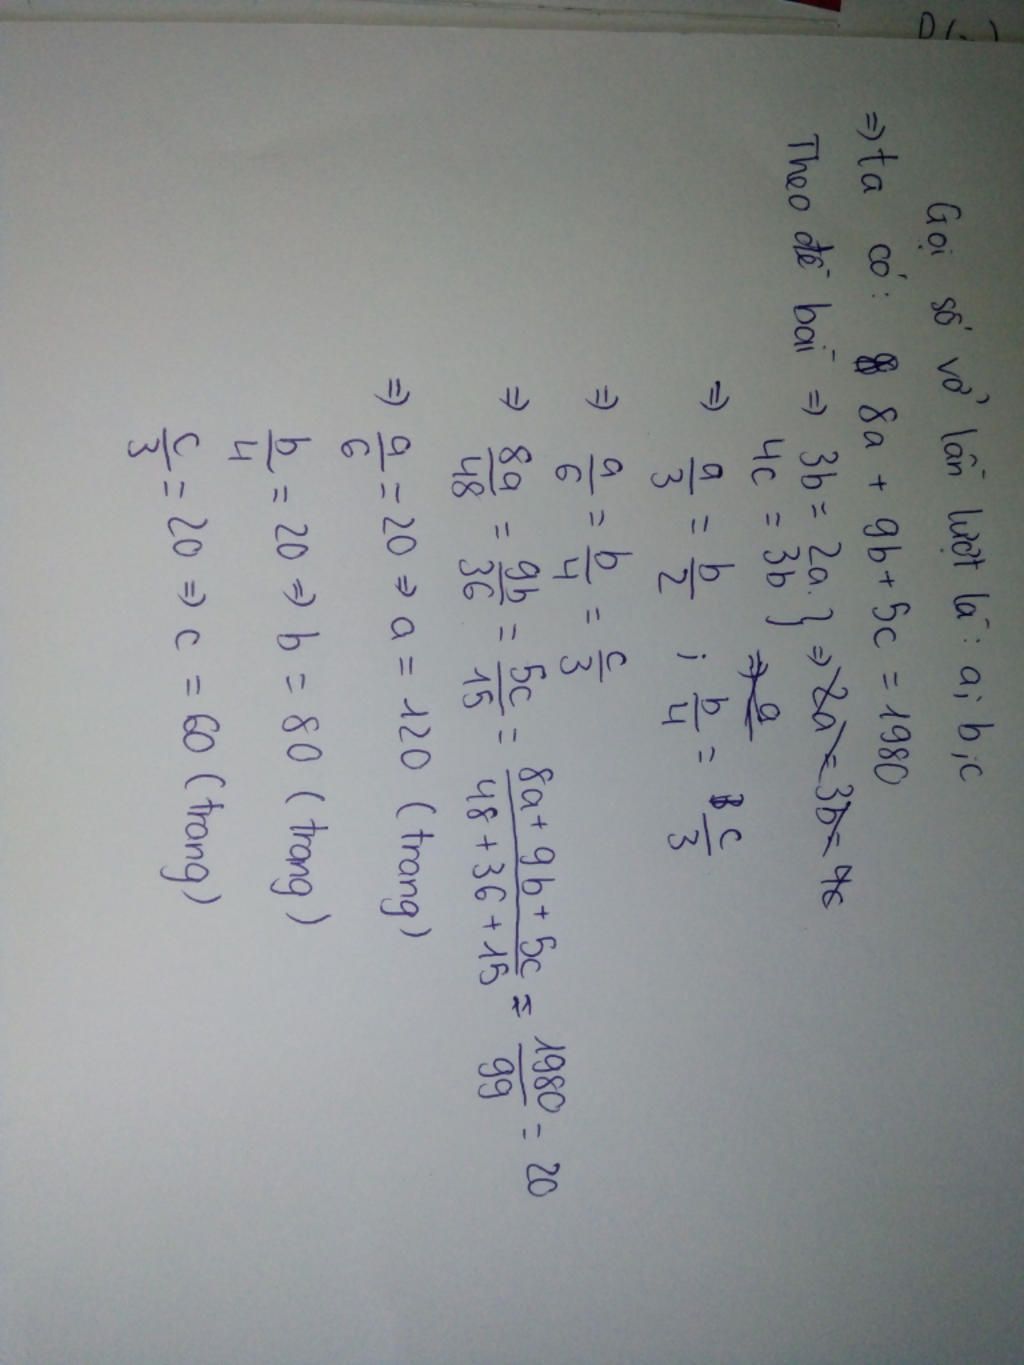 D(
Gọi số vở lần lượt là: a; b; c
=> ta có: 8a + 9b + 5c = 1980
Theo đề bài => 3b = 2a } => 2a = 3b = 4c
4c = 3b } => a
=> a/3 = b/2 ; b/4 = c/3
=> a/6 = b/4 = c/3
=> 8a/48 = 9b/36 = 5c/15 = (8a + 9b + 5c)/(48 + 36 + 15) = 1980/99 = 20
=> a/6 = 20 => a = 120 (trang)
b/4 = 20 => b = 80 (trang)
c/3 = 20 => c = 60 (trang)